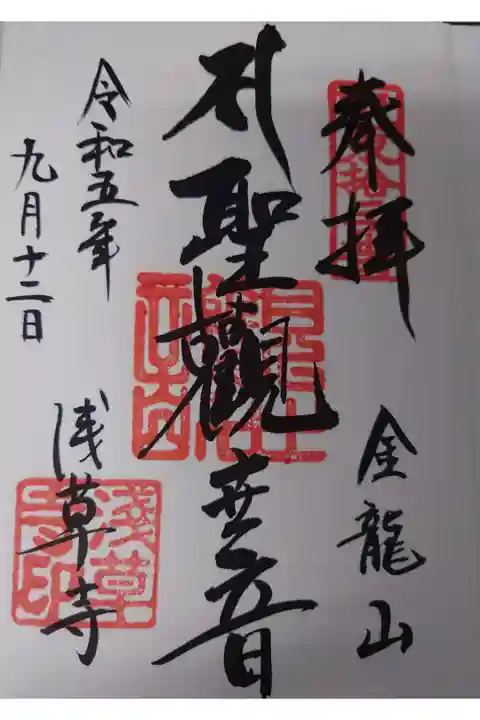 奉拝
金龍山
聖觀世音
令和五年
九月十二日
浅草寺
淺草寺印